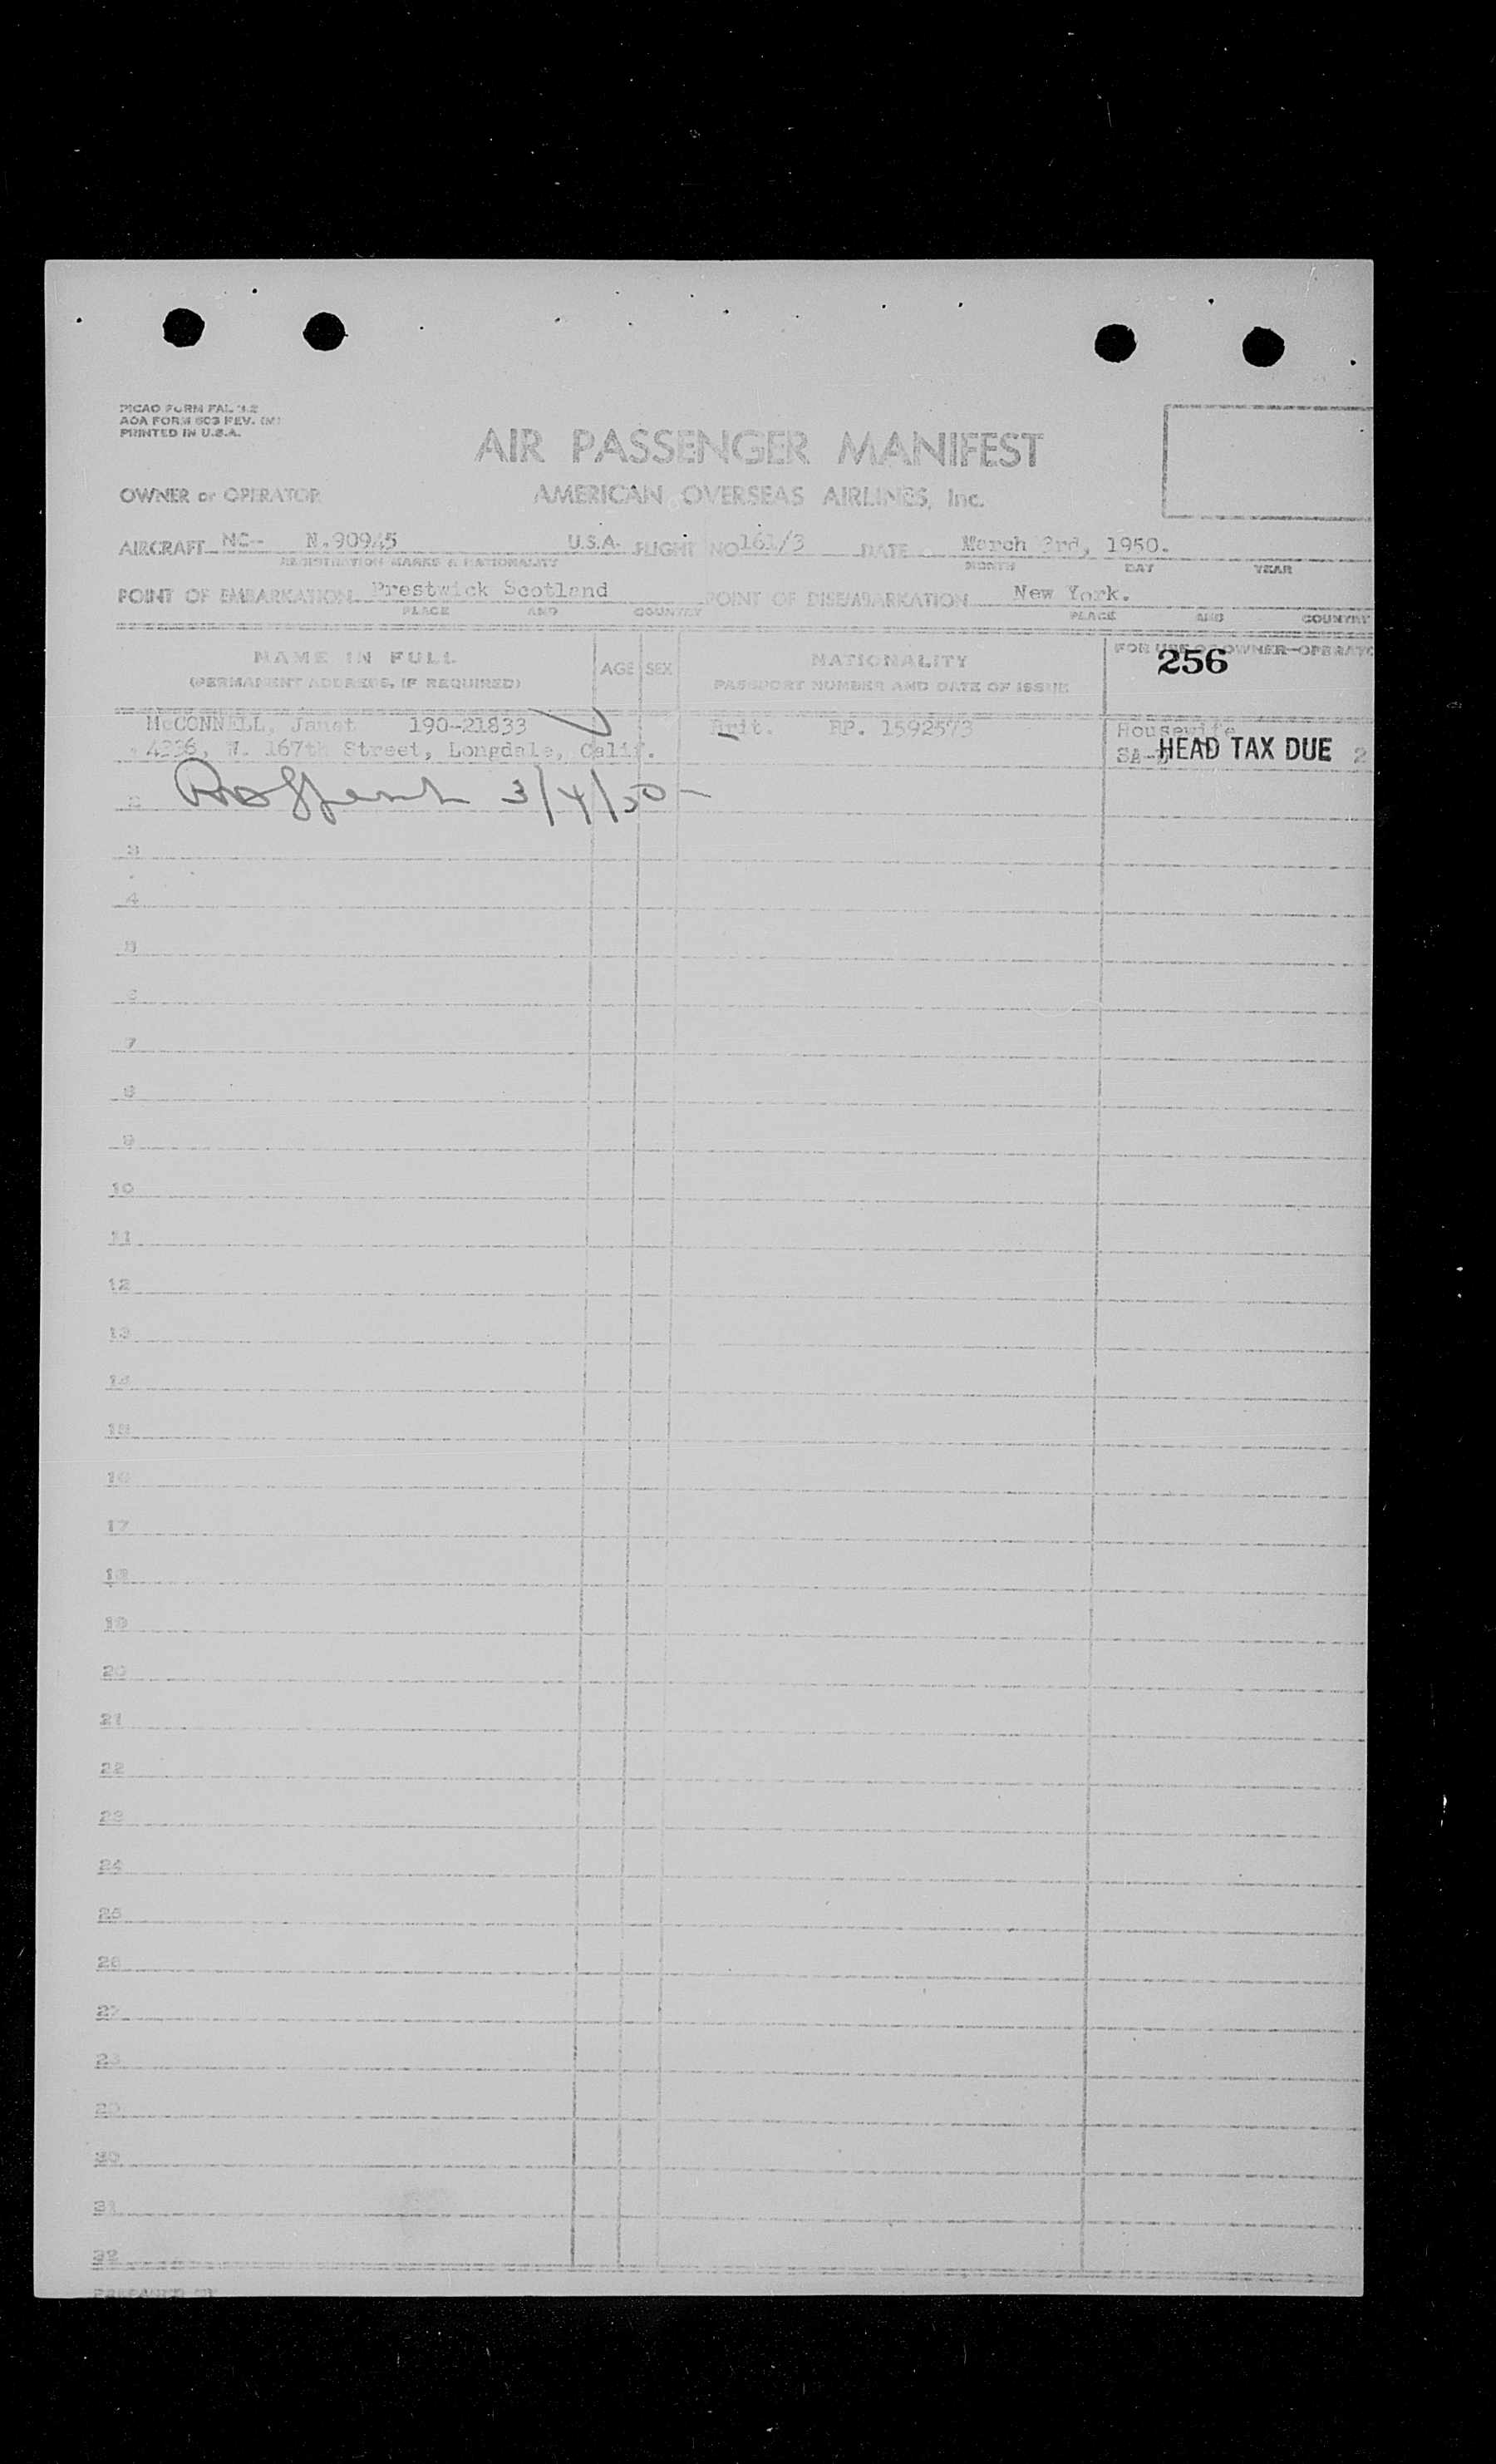 PICAO FORM FAL 3.2
AOA FORM 603 REV. (M)
PRINTED IN U.S.A.
AIR PASSENGER MANIFEST
OWNER or OPERATOR AMERICAN OVERSEAS AIRLINES, Inc.
AIRCRAFT NC-- N.90945 U.S.A. FLIGHT NO 161/3 DATE March 3rd, 1950.
REGISTRATION MARKS & NATIONALITY MONTH DAY YEAR
POINT OF EMBARKATION Prestwick Scotland POINT OF DISEMBARKATION New York.
PLACE AND COUNTRY PLACE AND COUNTRY
NAME IN FULL AGE SEX NATIONALITY FOR USE OF OWNER-OPERATO
(PERMANENT ADDRESS, IF REQUIRED) PASSPORT NUMBER AND DATE OF ISSUE 256
McCONNELL, Janet 190-21833 Brit. PP. 1592573 Housewife
4336, W. 167th Street, Longdale, Calif. SA- HEAD TAX DUE 2
2 3/4/50-
3
4
5
6
7
8
9
10
11
12
13
14
15
16
17
18
19
20
21
22
23
24
25
26
27
28
29
30
31
32
PREPARED BY